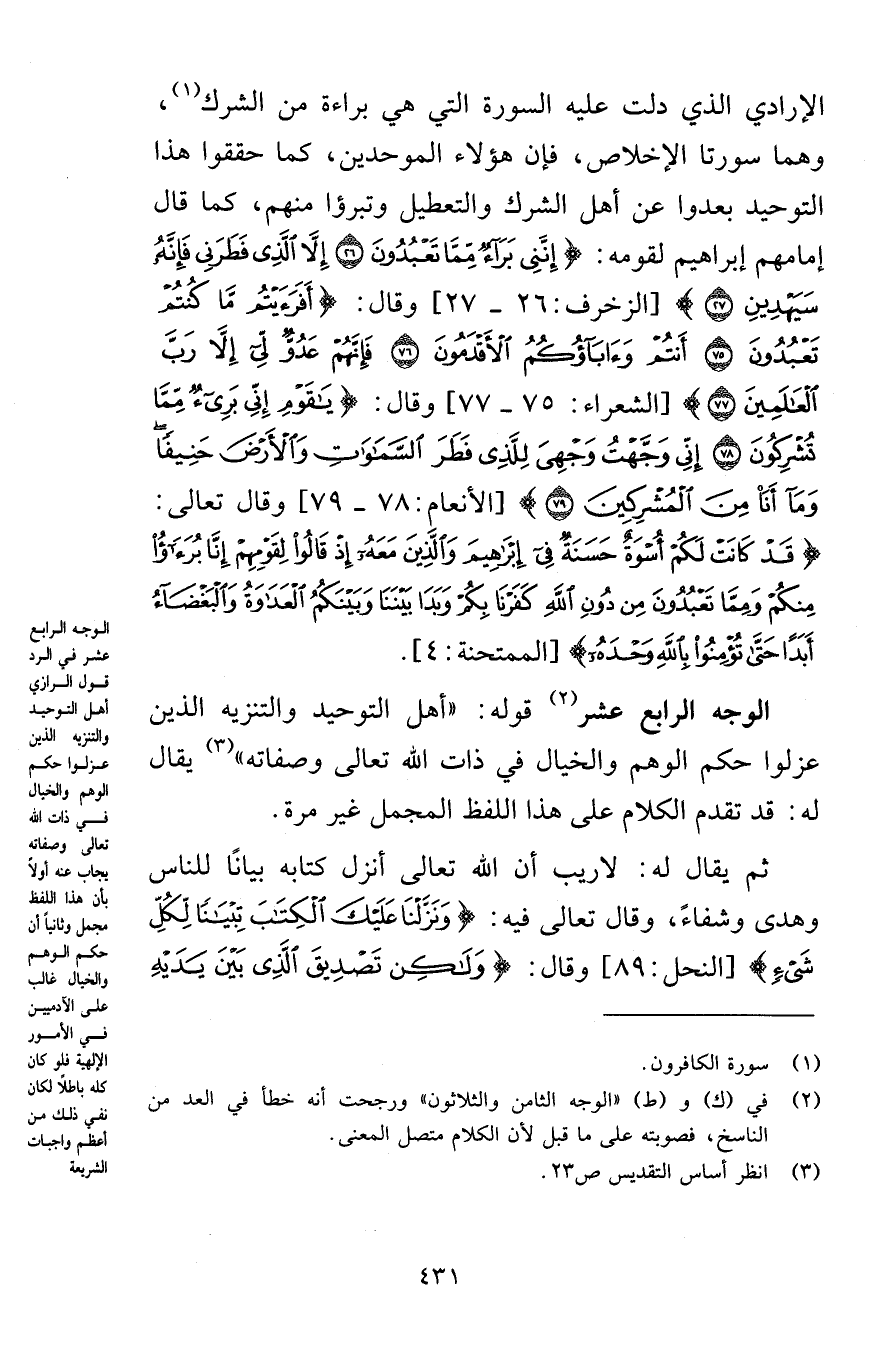 الإرادي الذي دلت عليه السورة التي هي براءة من الشرك(١)،
وهما سورتا الإخلاص، فإن هؤلاء الموحدين، كما حققوا هذا
التوحيد بعدوا عن أهل الشرك والتعطيل وتبرؤا منهم، كما قال
إمامهم إبراهيم لقومه: ﴿ إِنَّنِي بَرَآءٌ مِّمَّا تَعْبُدُونَ ۝٢٦ إِلَّا ٱلَّذِى فَطَرَنِى فَإِنَّهُۥ
سَيَهْدِينِ ۝٢٧ ﴾ [الزخرف: ٢٦ - ٢٧] وقال: ﴿ أَفَرَءَيْتُم مَّا كُنتُمْ
تَعْبُدُونَ ۝٧٥ أَنتُمْ وَءَابَآؤُكُمُ ٱلْأَقْدَمُونَ ۝٧٦ فَإِنَّهُمْ عَدُوٌّ لِّىٓ إِلَّا رَبَّ
ٱلْعَٰلَمِينَ ۝٧٧ ﴾ [الشعراء: ٧٥ - ٧٧] وقال: ﴿ يَٰقَوْمِ إِنِّى بَرِىٓءٌ مِّمَّا
تُشْرِكُونَ ۝٧٨ إِنِّى وَجَّهْتُ وَجْهِىَ لِلَّذِى فَطَرَ ٱلسَّمَٰوَٰتِ وَٱلْأَرْضَ حَنِيفًاۖ
وَمَآ أَنَا۠ مِنَ ٱلْمُشْرِكِينَ ۝٧٩ ﴾ [الأنعام: ٧٨ - ٧٩] وقال تعالى:
﴿ قَدْ كَانَتْ لَكُمْ أُسْوَةٌ حَسَنَةٌ فِىٓ إِبْرَٰهِيمَ وَٱلَّذِينَ مَعَهُۥٓ إِذْ قَالُوا۟ لِقَوْمِهِمْ إِنَّا بُرَءَٰٓؤُا۟
مِنكُمْ وَمِمَّا تَعْبُدُونَ مِن دُونِ ٱللَّهِ كَفَرْنَا بِكُمْ وَبَدَا بَيْنَنَا وَبَيْنَكُمُ ٱلْعَدَٰوَةُ وَٱلْبَغْضَآءُ
أَبَدًا حَتَّىٰ تُؤْمِنُوا۟ بِٱللَّهِ وَحْدَهُۥٓ ﴾ [الممتحنة: ٤].
الوجه الرابع عشر(٢) قوله: «أهل التوحيد والتنزيه الذين
عزلوا حكم الوهم والخيال في ذات الله تعالى وصفاته»(٣) يقال
له: قد تقدم الكلام على هذا اللفظ المجمل غير مرة.
ثم يقال له: لاريب أن الله تعالى أنزل كتابه بيانًا للناس
وهدى وشفاءً، وقال تعالى فيه: ﴿ وَنَزَّلْنَا عَلَيْكَ ٱلْكِتَٰبَ تِبْيَٰنًا لِّكُلِّ
شَىْءٍ ﴾ [النحل: ٨٩] وقال: ﴿ وَلَٰكِن تَصْدِيقَ ٱلَّذِى بَيْنَ يَدَيْهِ
الوجه الرابع
عشر في الرد
قول الرازي
أهل التوحيد
والتنزيه الذين
عزلوا حكم
الوهم والخيال
في ذات الله
تعالى وصفاته
يجاب عنه أولاً
بأن هذا اللفظ
مجمل وثانياً أن
حكم الوهم
والخيال غالب
على الآدميين
في الأمور
الإلهية فلو كان
كله باطلًا لكان
نفي ذلك من
أعظم واجبات
الشريعة
(١) سورة الكافرون.
(٢) في (ك) و (ط) «الوجه الثامن والثلاثون» ورجحت أنه خطأ في العد من
الناسخ، فصوبته على ما قبل لأن الكلام متصل المعنى.
(٣) انظر أساس التقديس ص٢٣.
٤٣١